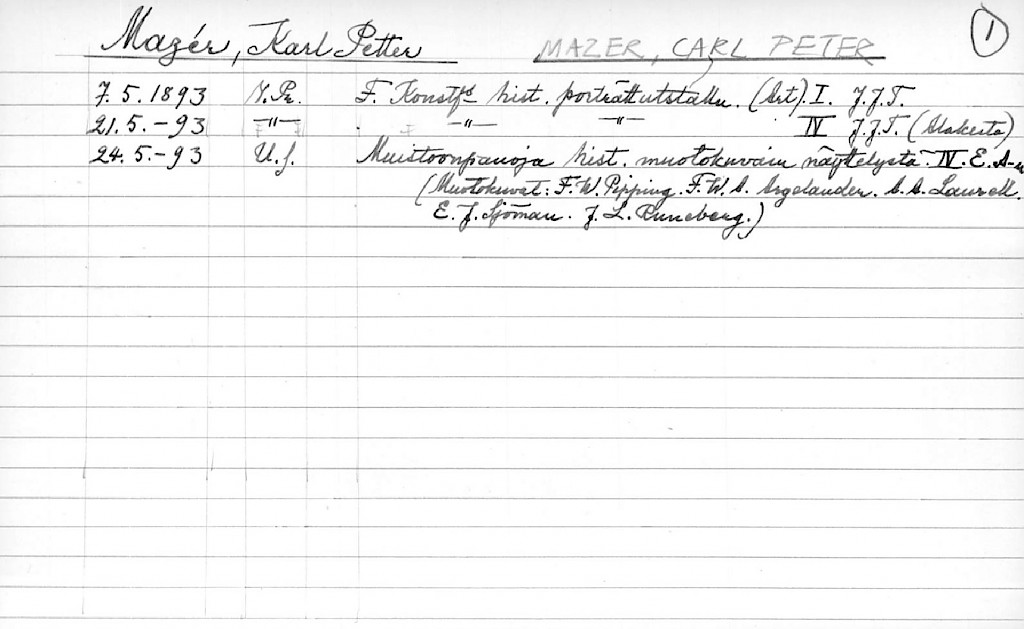 Mazér, Karl Petter MAZER, CARL PETER 1
7.5.1893 N.Pr. F. Konstfs hist. porträttutställn. (Art). I. J.J.T.
21.5.-93 -"- -"- -"- IV J.J.T. (Alakerta)
24.5.-93 U.S. Muistoonpanoja hist. muotokuvain näyttelystä. IV. E.A-n
(Muotokuvat: F.W. Pipping. F.W.A. Argelander. A.A. Laurell.
E.J. Sjöman. J.L. Runeberg.)